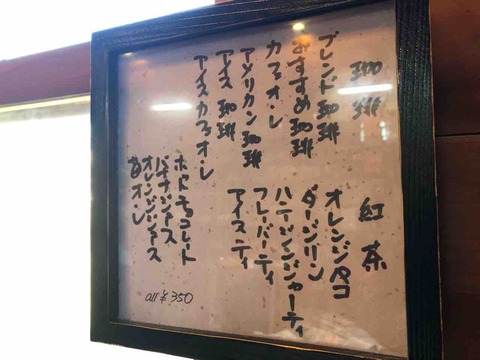 珈琲
ブレンド珈琲
おすすめ珈琲
カフェオ・レ
アメリカン珈琲
アイス珈琲
アイスカフェオ・レ
紅茶
オレンジペコ
ダージリン
ハニージンジャーティ
フレーバーティ
アイスティ
ホットチョコレート
バナナジュース
オレンジジュース
オ・レ
all ¥350